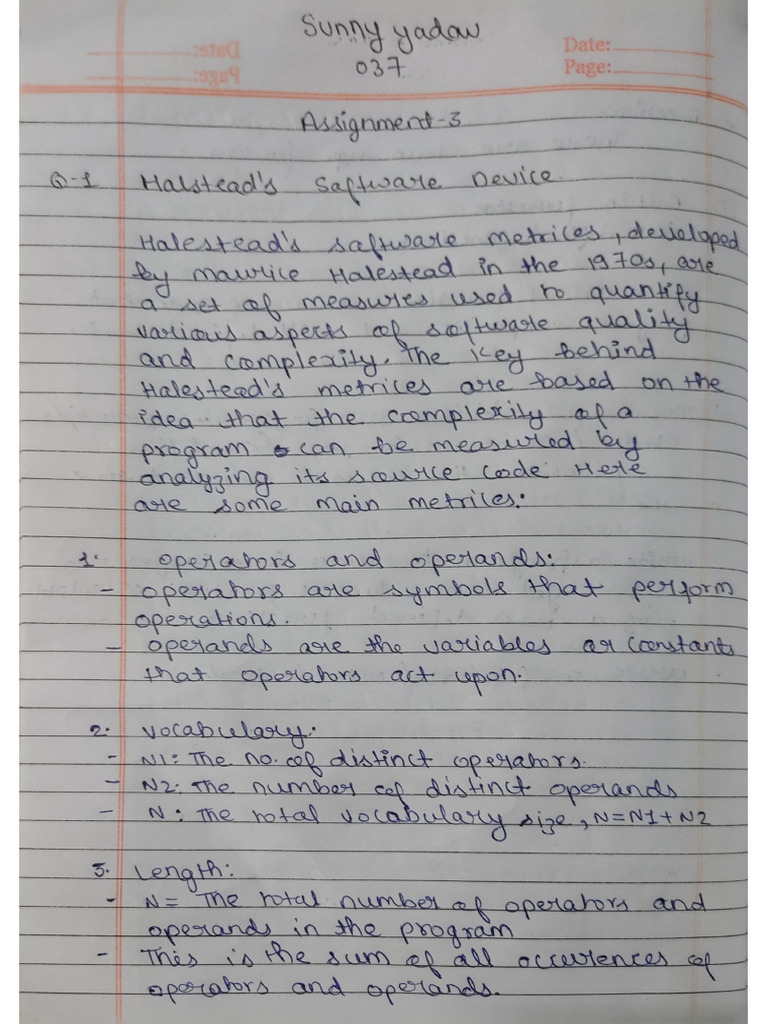 Sunny yadav
Date:
037
Page:
Assignment-3
Q-1 Halstead's Saftware Device.
Halestead's saftware metrices, developed
by maurice Halestead in the 1970s, are
a set of measures used to quantify
various aspects of software quality
and complexity. The key behind
Halestead's metrices are based on the
idea that the complexity of a
program can be measured by
analyzing its source code Here
are some main metrices:
1. operators and operands:
- operators are symbols that perform
operations.
- operands are the variables or constants
that operators act upon.
2. vocabulary:
- N1: The no. of distinct operators.
- N2: The number of distinct operands
- N: The total vocabulary size, N=N1+N2
3. Length:
- N= The total number of operators and
operands in the program
- This is the sum of all occurences of
operators and operands.